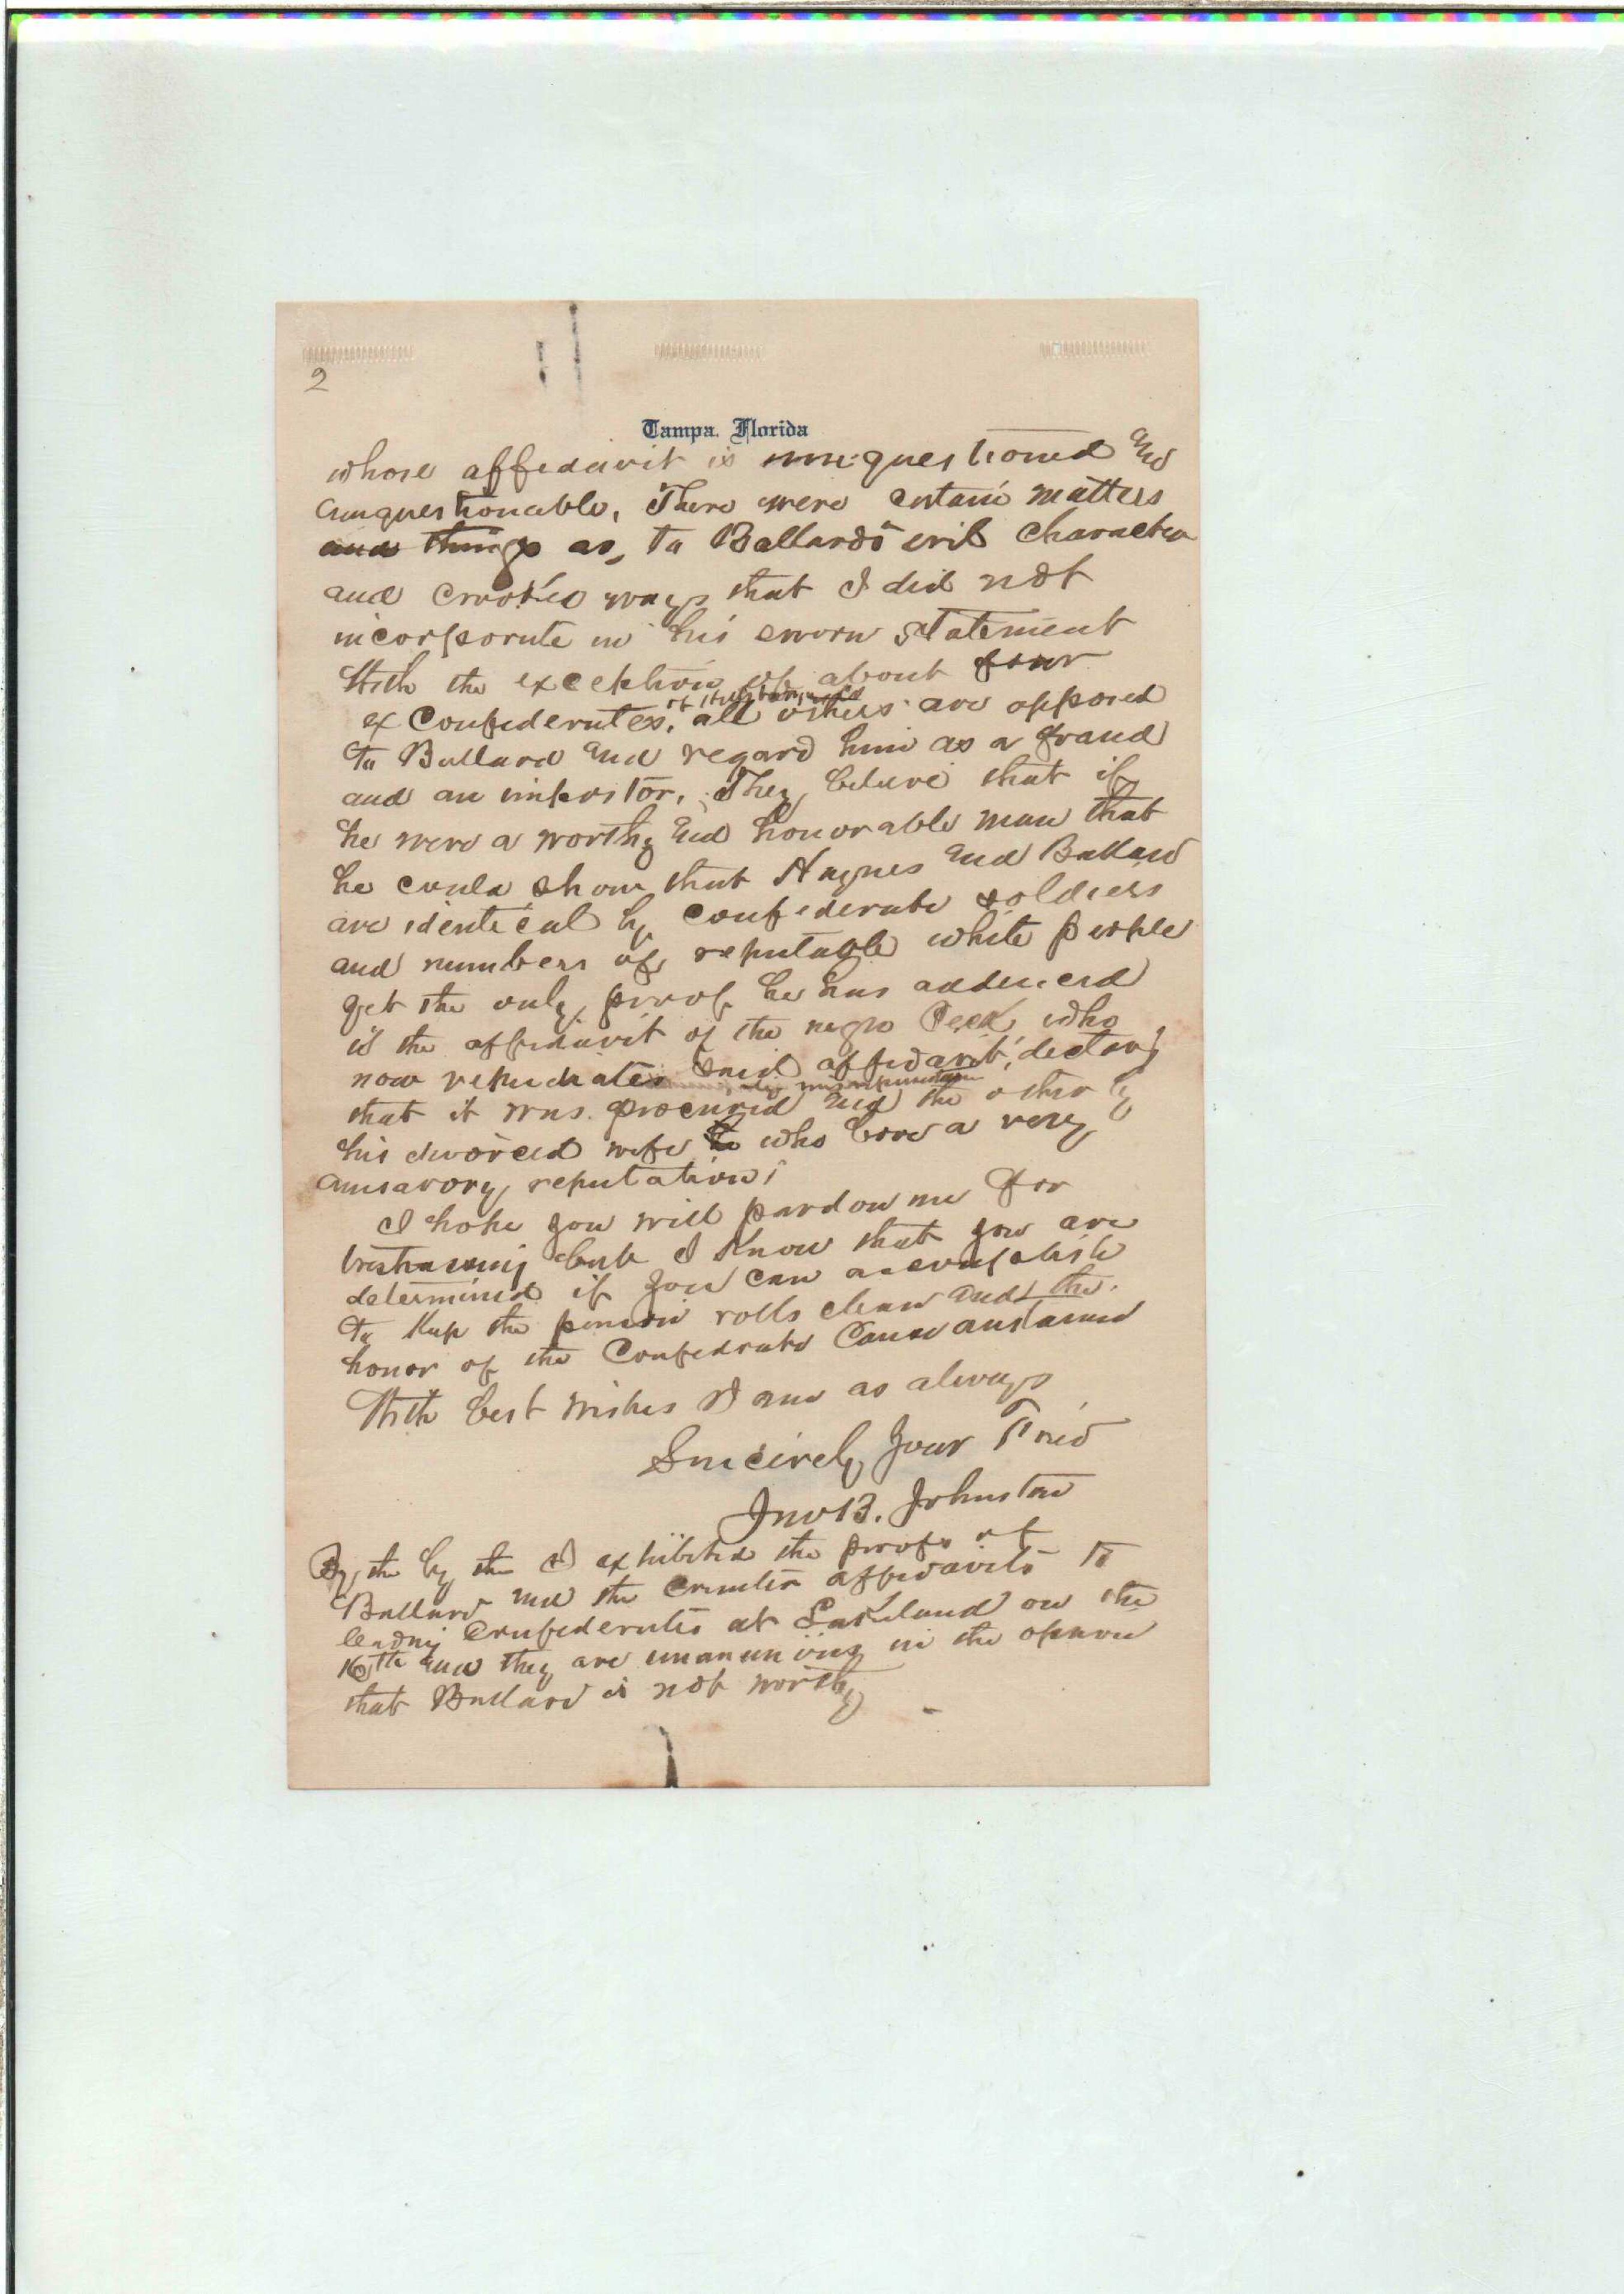 2
Tampa. Florida
whose affidavit is unquestioned and
unquestionable. There were certain matters
and things as, to Ballards evil character
and crooked ways that I did not
incorporate in his sworn statement
With the exception of about four
ex Confederates, all others are opposed
to Ballard and regard him as a fraud
and an impostor. They believe that if
he were a worthy and honorable man that
he could show that Haynes and Ballard
are identical by confederate soldiers
and numbers of reputable white people
yet the only proof he has adduced
is the affidavit of the negro Peek who
now repudiates said affidavit, declaring
by misrepresentation
that it was procured and the other by
his divorced wife who bore a very
unsavory reputation.
I hope you will pardon me for
but I know that you are
determined if you can accomplish
to keep the pension rolls clean and the
honor of the Confederate Cause sustained
With best wishes I am as always
Sincerely your Friend
Jno B. Johnston
By the by the I exhibited the proofs of
Ballard and the Counter affidavits to
leading Confederates at Lakeland on the
16th and they are unanimous in the opinion
that Ballard is not worthy